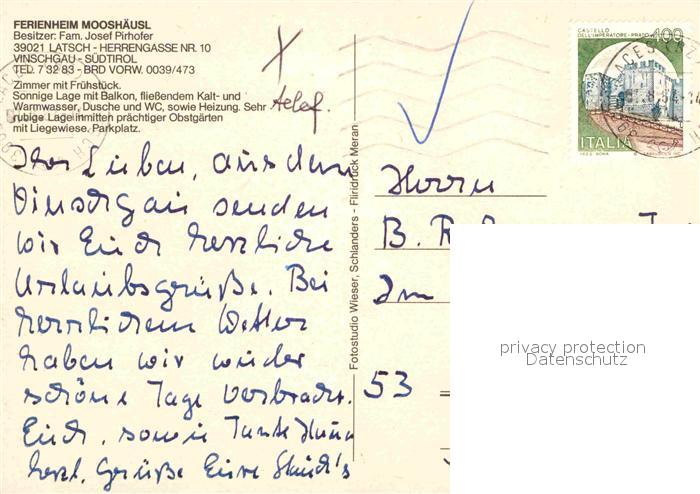 FERIENHEIM MOOSHÄUSL
Besitzer: Fam. Josef Pirhofer
39021 LATSCH - HERRENGASSE NR. 10
VINSCHGAU - SÜDTIROL
TEL. 7 32 83 - BRD VORW. 0039/473
Zimmer mit Frühstück.
Sonnige Lage mit Balkon, fließendem Kalt- und
Warmwasser, Dusche und WC, sowie Heizung. Sehr
ruhige Lage inmitten prächtiger Obstgärten
mit Liegewiese. Parkplatz.
Telef.
Ihr Lieben, aus dem
Vinschgau senden
wir Euch herzliche
Urlaubsgrüße. Bei
herrlichem Wetter
haben wir wieder
schöne Tage verbracht.
Euch, sowie
herzl. Grüße Eure
Fotostudio Wieser, Schlanders - Fliridruck Meran
CASTELLO
DELL'IMPERATORE - PRATO
400
ITALIA
Herrn
B.
Im
53
privacy protection
Datenschutz